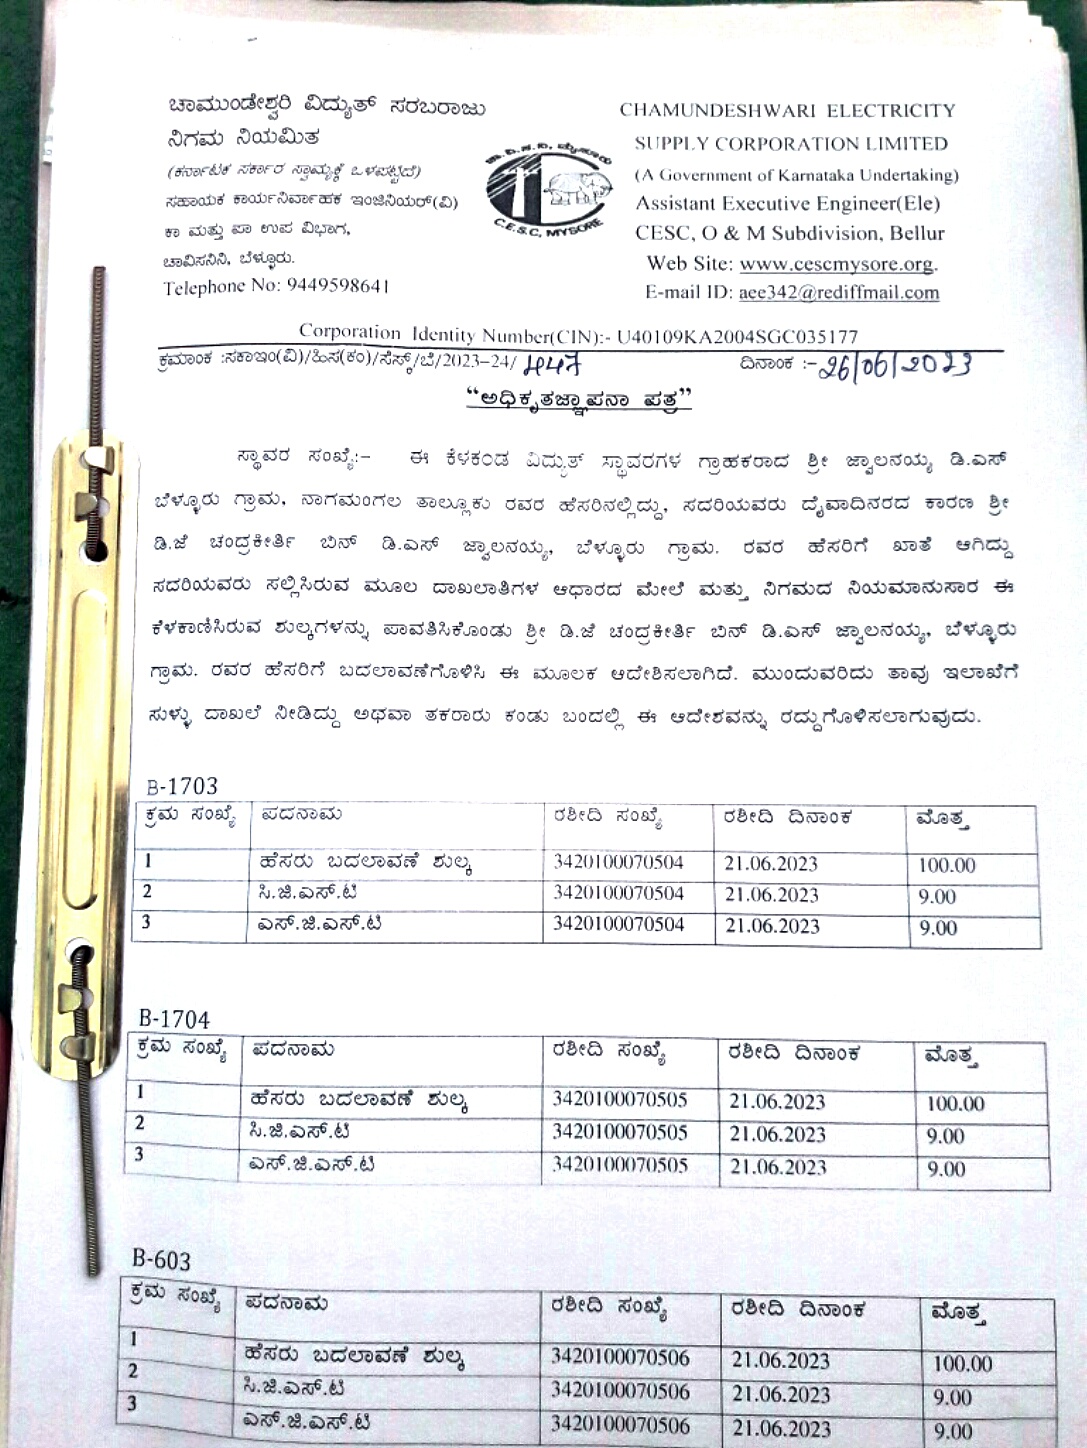 ಚಾಮುಂಡೇಶ್ವರಿ ವಿದ್ಯುತ್ ಸರಬರಾಜು
ನಿಗಮ ನಿಯಮಿತ
(ಕರ್ನಾಟಕ ಸರ್ಕಾರ ಸ್ವಾಮ್ಯಕ್ಕೆ ಒಳಪಟ್ಟಿದೆ)
ಸಹಾಯಕ ಕಾರ್ಯನಿರ್ವಾಹಕ ಇಂಜಿನಿಯರ್(ವಿ)
ಕಾ ಮತ್ತು ಪಾ ಉಪ ವಿಭಾಗ,
ಚಾವಿಸನಿನಿ, ಬೆಳ್ಳೂರು.
Telephone No: 9449598641
ಚಾ.ವಿ.ಸ.ನಿ, ಮೈಸೂರು
C.E.S.C, MYSORE
CHAMUNDESHWARI ELECTRICITY
SUPPLY CORPORATION LIMITED
(A Government of Karnataka Undertaking)
Assistant Executive Engineer(Ele)
CESC, O & M Subdivision, Bellur
Web Site: www.cescmysore.org.
E-mail ID: aee342@rediffmail.com
Corporation Identity Number(CIN):- U40109KA2004SGC035177
ಕ್ರಮಾಂಕ :ಸಕಾಇಂ(ವಿ)/ಹಿಸ(ಕಂ)/ಸೆಸ್ಕ್/ಬೆ/2023-24/ 447 ದಿನಾಂಕ :- 26/06/2023
“ಅಧಿಕೃತಜ್ಞಾಪನಾ ಪತ್ರ”
ಸ್ಥಾವರ ಸಂಖ್ಯೆ:- ಈ ಕೆಳಕಂಡ ವಿದ್ಯುತ್ ಸ್ಥಾವರಗಳ ಗ್ರಾಹಕರಾದ ಶ್ರೀ ಜ್ವಾಲನಯ್ಯ ಡಿ.ಎಸ್
ಬೆಳ್ಳೂರು ಗ್ರಾಮ, ನಾಗಮಂಗಲ ತಾಲ್ಲೂಕು ರವರ ಹೆಸರಿನಲ್ಲಿದ್ದು, ಸದರಿಯವರು ದೈವಾದಿನರದ ಕಾರಣ ಶ್ರೀ
ಡಿ.ಜೆ ಚಂದ್ರಕೀರ್ತಿ ಬಿನ್ ಡಿ.ಎಸ್ ಜ್ವಾಲನಯ್ಯ, ಬೆಳ್ಳೂರು ಗ್ರಾಮ. ರವರ ಹೆಸರಿಗೆ ಖಾತೆ ಆಗಿದ್ದು
ಸದರಿಯವರು ಸಲ್ಲಿಸಿರುವ ಮೂಲ ದಾಖಲಾತಿಗಳ ಆಧಾರದ ಮೇಲೆ ಮತ್ತು ನಿಗಮದ ನಿಯಮಾನುಸಾರ ಈ
ಕೆಳಕಾಣಿಸಿರುವ ಶುಲ್ಕಗಳನ್ನು ಪಾವತಿಸಿಕೊಂಡು ಶ್ರೀ ಡಿ.ಜೆ ಚಂದ್ರಕೀರ್ತಿ ಬಿನ್ ಡಿ.ಎಸ್ ಜ್ವಾಲನಯ್ಯ, ಬೆಳ್ಳೂರು
ಗ್ರಾಮ. ರವರ ಹೆಸರಿಗೆ ಬದಲಾವಣೆಗೊಳಿಸಿ ಈ ಮೂಲಕ ಆದೇಶಿಸಲಾಗಿದೆ. ಮುಂದುವರಿದು ತಾವು ಇಲಾಖೆಗೆ
ಸುಳ್ಳು ದಾಖಲೆ ನೀಡಿದ್ದು ಅಥವಾ ತಕರಾರು ಕಂಡು ಬಂದಲ್ಲಿ ಈ ಆದೇಶವನ್ನು ರದ್ದುಗೊಳಿಸಲಾಗುವುದು.
B-1703
ಕ್ರಮ ಸಂಖ್ಯೆ ಪದನಾಮ ರಶೀದಿ ಸಂಖ್ಯೆ ರಶೀದಿ ದಿನಾಂಕ ಮೊತ್ತ
1 ಹೆಸರು ಬದಲಾವಣೆ ಶುಲ್ಕ 3420100070504 21.06.2023 100.00
2 ಸಿ.ಜಿ.ಎಸ್.ಟಿ 3420100070504 21.06.2023 9.00
3 ಎಸ್.ಜಿ.ಎಸ್.ಟಿ 3420100070504 21.06.2023 9.00
B-1704
ಕ್ರಮ ಸಂಖ್ಯೆ ಪದನಾಮ ರಶೀದಿ ಸಂಖ್ಯೆ ರಶೀದಿ ದಿನಾಂಕ ಮೊತ್ತ
1 ಹೆಸರು ಬದಲಾವಣೆ ಶುಲ್ಕ 3420100070505 21.06.2023 100.00
2 ಸಿ.ಜಿ.ಎಸ್.ಟಿ 3420100070505 21.06.2023 9.00
3 ಎಸ್.ಜಿ.ಎಸ್.ಟಿ 3420100070505 21.06.2023 9.00
B-603
ಕ್ರಮ ಸಂಖ್ಯೆ ಪದನಾಮ ರಶೀದಿ ಸಂಖ್ಯೆ ರಶೀದಿ ದಿನಾಂಕ ಮೊತ್ತ
1 ಹೆಸರು ಬದಲಾವಣೆ ಶುಲ್ಕ 3420100070506 21.06.2023 100.00
2 ಸಿ.ಜಿ.ಎಸ್.ಟಿ 3420100070506 21.06.2023 9.00
3 ಎಸ್.ಜಿ.ಎಸ್.ಟಿ 3420100070506 21.06.2023 9.00